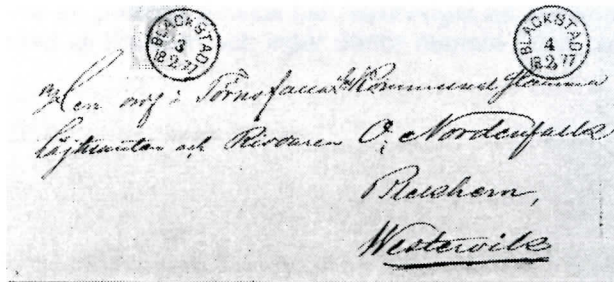 BLACKSTAD
3
18 2 77
BLACKSTAD
4
18 2 77
Herr ordf i Törnsfalls Kommunal
Löjtnanten och Riddaren O. Nordenfalk
Blekhem,
Westervik